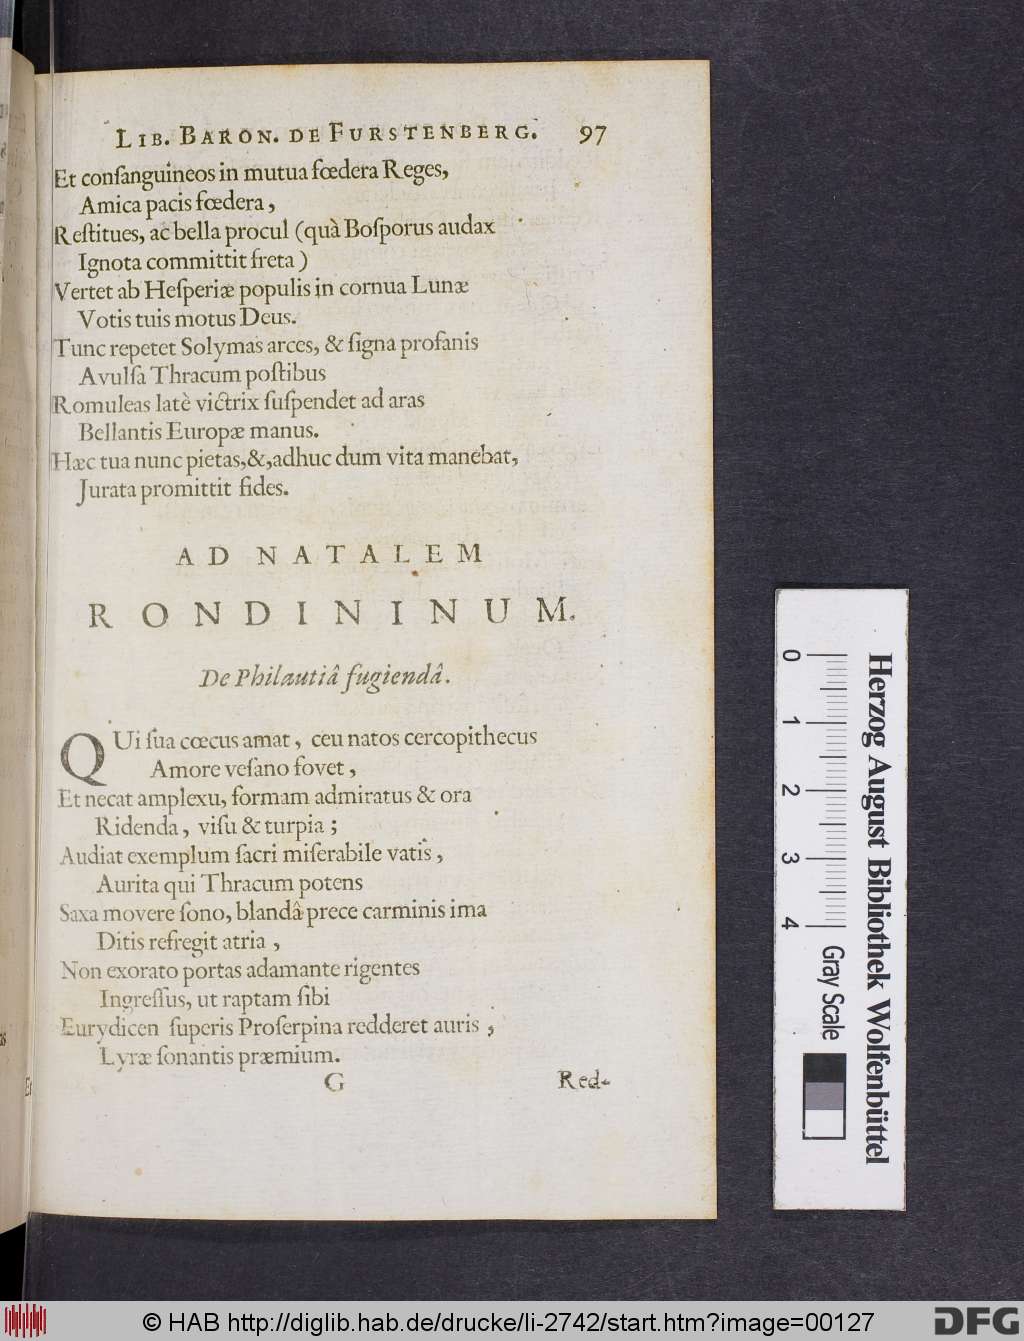 LIB. BARON. DE FURSTENBERG. 97
Et conſanguineos in mutua fœdera Reges,
Amica pacis fœdera,
Reſtitues, ac bella procul (quà Boſporus audax
Ignota committit freta)
Vertet ab Heſperiæ populis in cornua Lunæ
Votis tuis motus Deus.
Tunc repetet Solymas arces, & ſigna profanis
Avulſa Thracum poſtibus
Romuleas latè victrix ſuſpendet ad aras
Bellantis Europæ manus.
Hæc tua nunc pietas,&,adhuc dum vita manebat,
Jurata promittit fides.
AD NATALEM
RONDININUM.
De Philautiâ fugiendâ.
QUi ſua cœcus amat, ceu natos cercopithecus
Amore veſano fovet,
Et necat amplexu, formam admiratus & ora
Ridenda, viſu & turpia;
Audiat exemplum ſacri miſerabile vatis,
Aurita qui Thracum potens
Saxa movere ſono, blandâ prece carminis ima
Ditis refregit atria,
Non exorato portas adamante rigentes
Ingreſſus, ut raptam ſibi
Eurydicen ſuperis Proſerpina redderet auris,
Lyræ ſonantis præmium.
G Red-
0 1 2 3 4
Gray Scale
Herzog August Bibliothek Wolfenbüttel
© HAB http://diglib.hab.de/drucke/li-2742/start.htm?image=00127
DFG